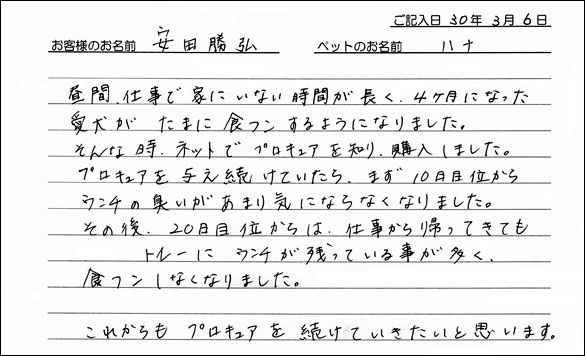 ご記入日 30年 3月 6日
お客様のお名前 安田勝弘 ペットのお名前 ハナ
昼間、仕事で家にいない時間が長く、4ヶ月になった
愛犬が たまに食フンするようになりました。
そんな時、ネットで プロキュアを知り、購入しました。
プロキュアを与え続けていたら、まず10日目位から
ウンチの臭いがあまり気にならなくなりました。
その後、20日目位からは、仕事から帰ってきても
トレーに ウンチが残っている事が多く、
食フンしなくなりました。
これからも プロキュアを続けていきたいと思います。